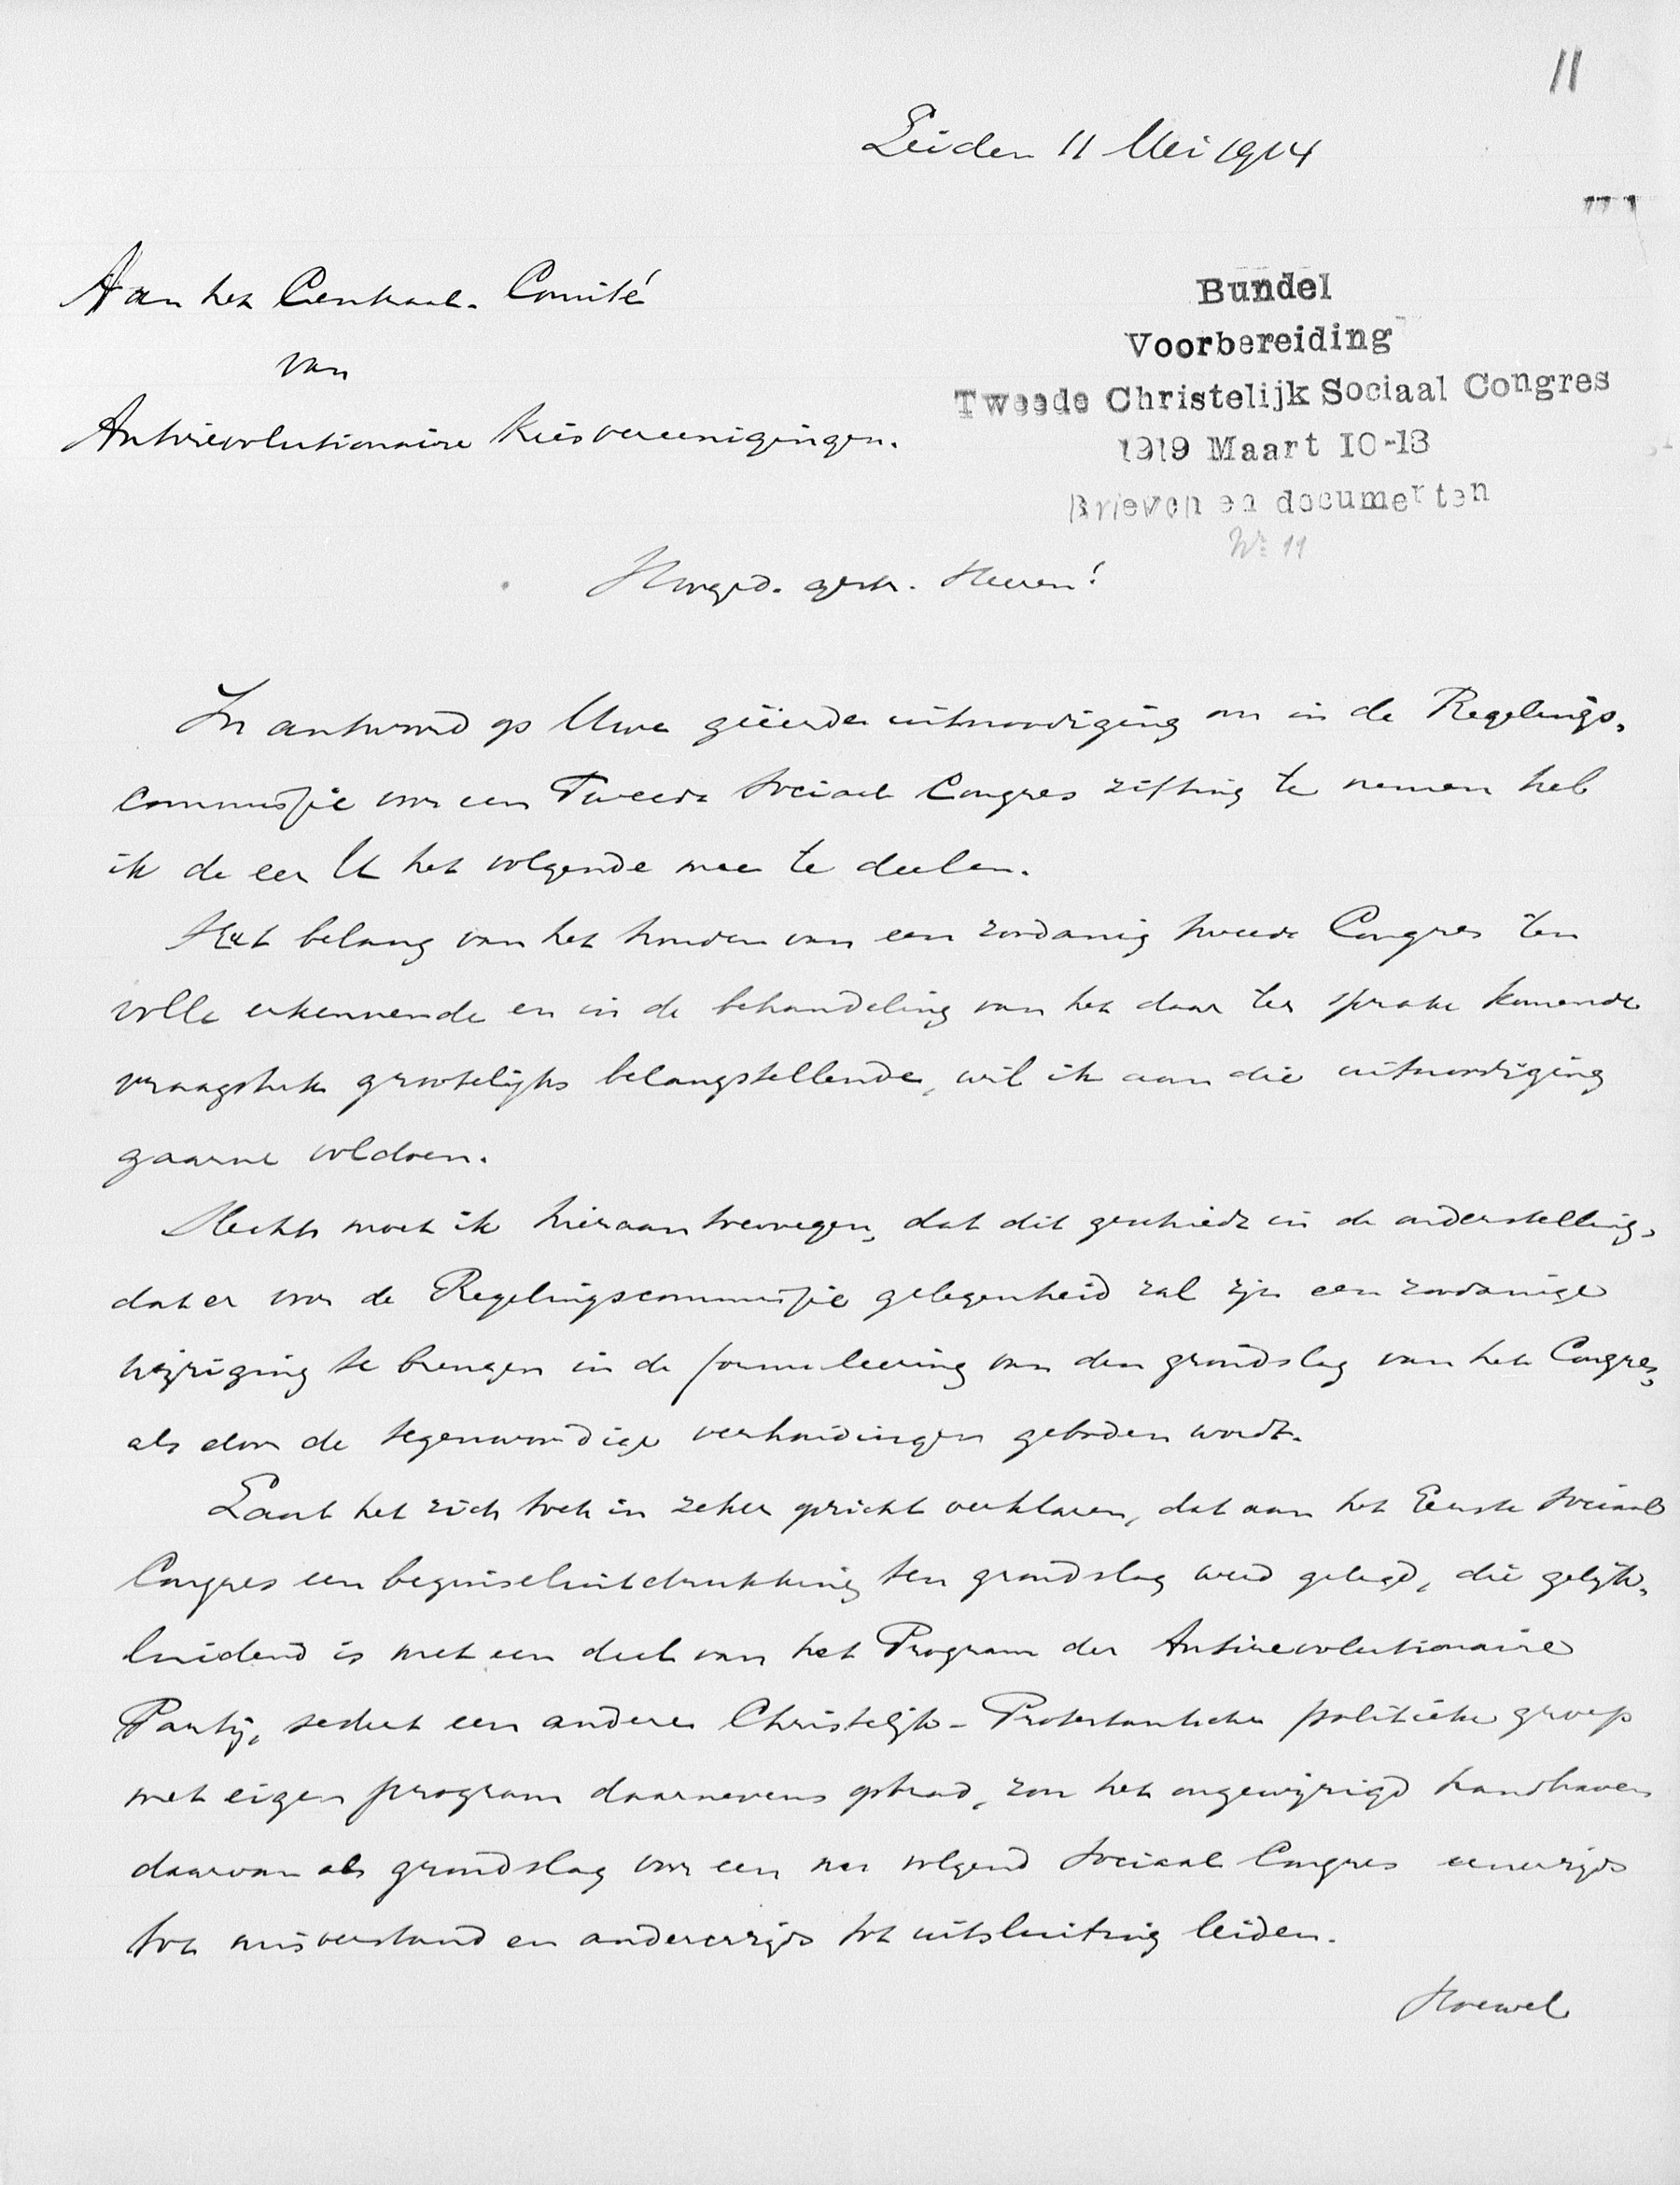 11
Leiden 11 Mei 1914
Aan het Centraal-Comité
van
Antirevolutionaire Kiesvereenigingen.
Bundel
Voorbereiding
Tweede Christelijk Sociaal Congres
1919 Maart 10-13
Brieven en documenten
No 11
Hooged. gestr. Heeren!
In antwoord op Uwe geëerde uitnoodiging om in de Regelings-
commissie voor een Tweede Sociaal Congres zitting te nemen heb
ik de eer U het volgende mee te deelen.
Het belang van het houden van een zoodanig tweede Congres ten
volle erkennende en in de behandeling van het daar ter sprake komende
vraagstuk grootelijks belangstellende, wil ik aan die uitnoodiging
gaarne voldoen.
Slechts moet ik hieraan toevoegen, dat dit geschiedt in de onderstelling,
dat er voor de Regelingscommissie gelegenheid zal zijn een zoodanige
wijziging te brengen in de formuleering van den grondslag van het Congres,
als door de tegenwoordige verhoudingen geboden wordt.
Laat het zich toch in zeker opzicht verklaren, dat aan het Eerste Sociaal
Congres een beginseluitdrukking ten grondslag werd gelegd, die gelijk-
luidend is met een deel van het Program der Antirevolutionaire
Partij, sedert een andere Christelijk-Protestantsche politieke groep
met eigen program daarnevens optrad, zou het ongewijzigd handhaven
daarvan als grondslag voor een nu volgend Sociaal Congres eenerzijds
tot misverstand en anderzijds tot uitsluiting leiden.
Hoewel